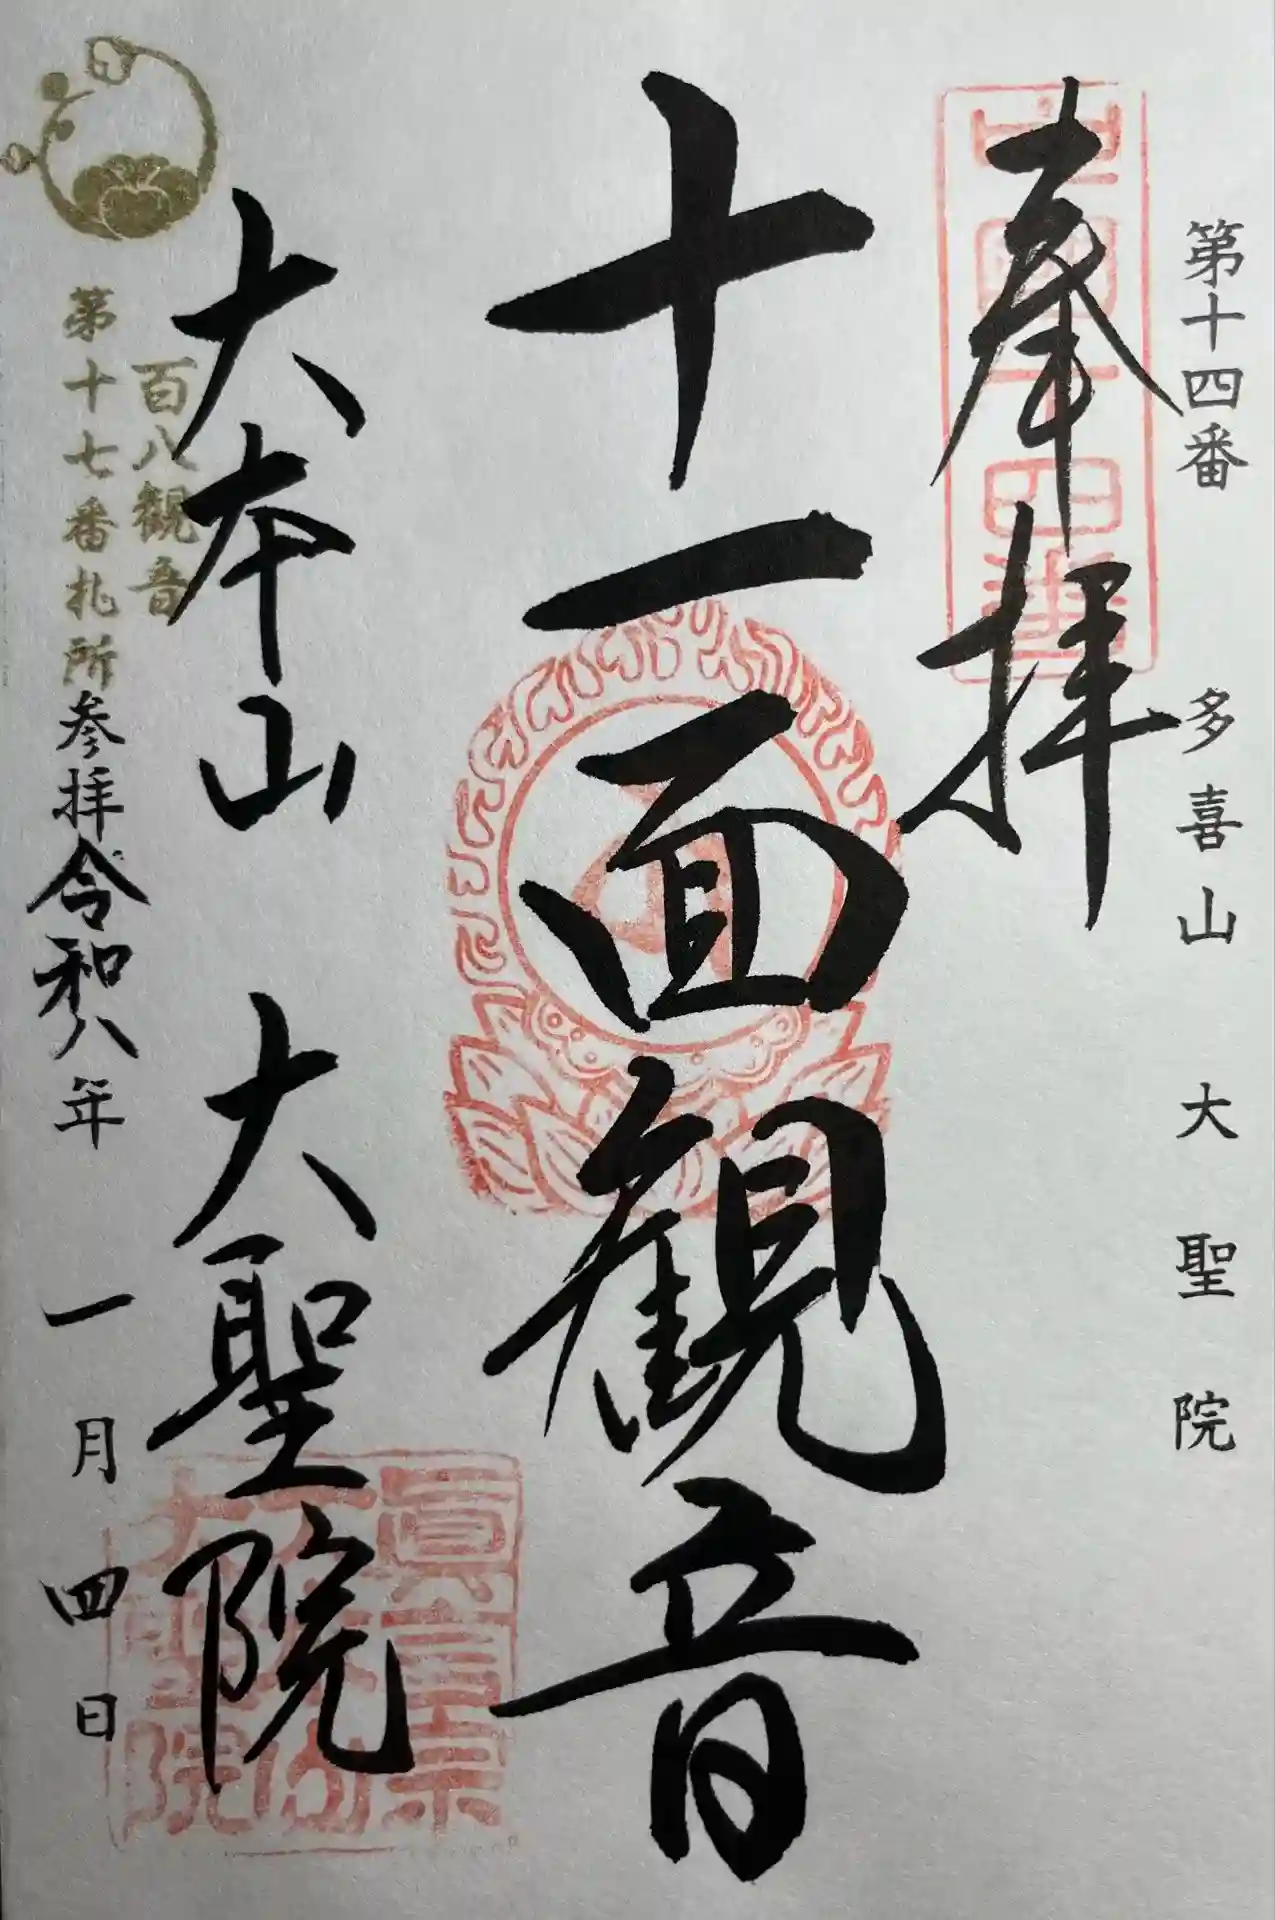 第十四番 多喜山 大聖院
奉拝
十一面観音
大本山 大聖院
百八観音
第十七番札所
参拝令和八年 一月四日
眞言宗
大本山
大聖院